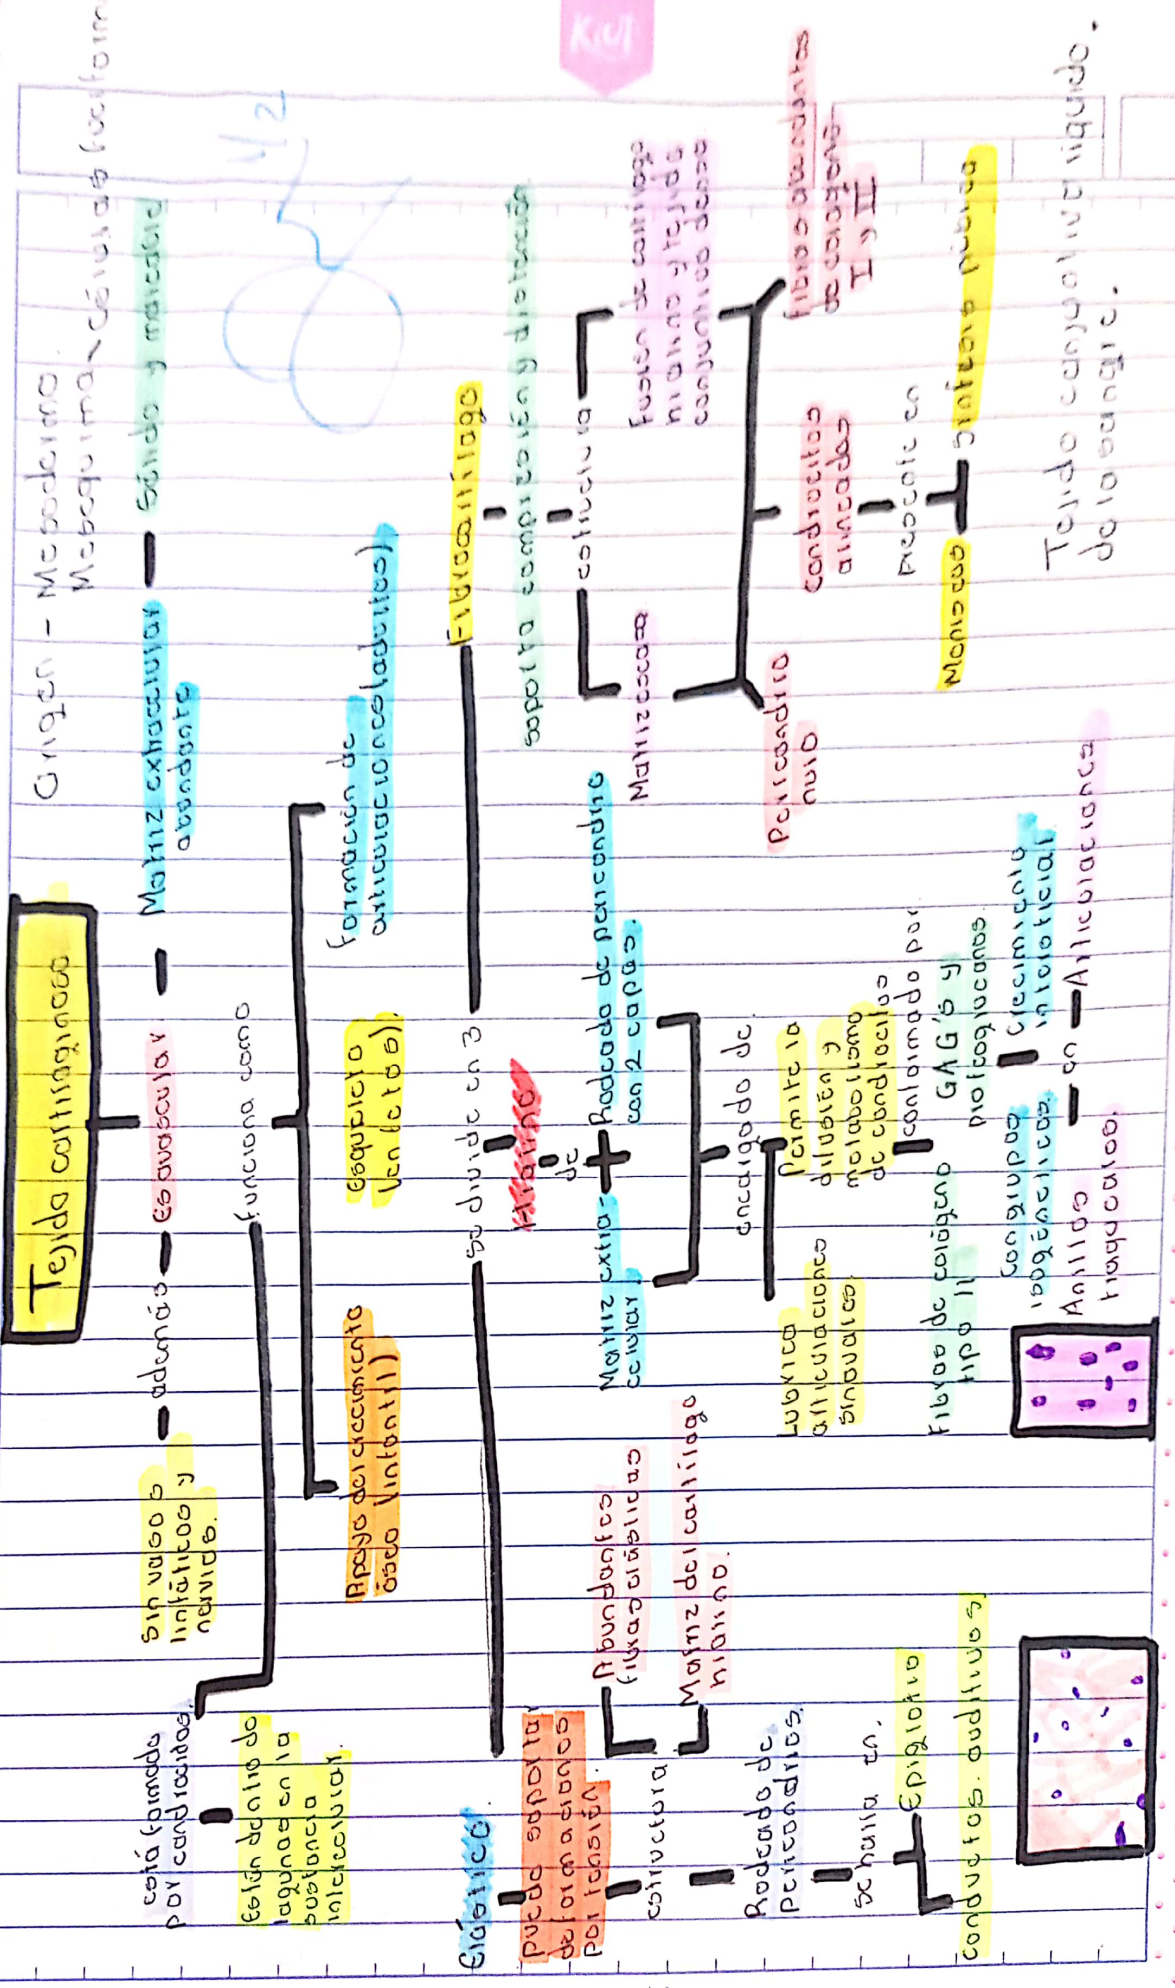 Kiut
1/2
Tejido cartilaginoso
Origen - Mesodermo.
Mesequima
sin vasos
linfáticos y
nervios.
además
Es avascular
Matriz extracelular
abundante
Sólido y maleable
está formado
por condrocitos.
Están dentro de
lagunas en la
sustancia
intercelular.
funciona como
Apoyo del crecimiento
óseo (infantil)
esqueleto
(en fetos).
Formación de
articulaciones (adultos)
Se divide en 3
Elástico.
puede soportar
deformaciones
por tensión.
estructura
Abundantes
fibras elásticas
Matriz del cartílago
hialino.
Rodeado de
pericondrios.
Se halla en.
Epiglotis
Conductos auditivos
Hialino
de
Matriz extra-
celular.
Rodeado de pericondrio
con 2 capas.
encargado de.
Lubrica
articulaciones
sinovales.
Permite la
difusión y
metabolismo
de condrocitos
conformado por.
Fibras de colágeno
tipo II
GAG's y
proteoglucanos.
con grupos
isogénicos.
Crecimiento
intersticial
Anillos
traqueales.
en
Articulaciones
Fibrocartílago
soporta compresión y distención
estructura
Matriz escasa
Fusión de cartílago
hialino y tejido
conjuntivo denso.
Pericondrio
nulo
condrocitos
alineados
fibras abundantes
de colágeno
I y III
presente en
Meniscos
sínfisis púbica
Tejido conjuntivo líquido.
de la sangre.